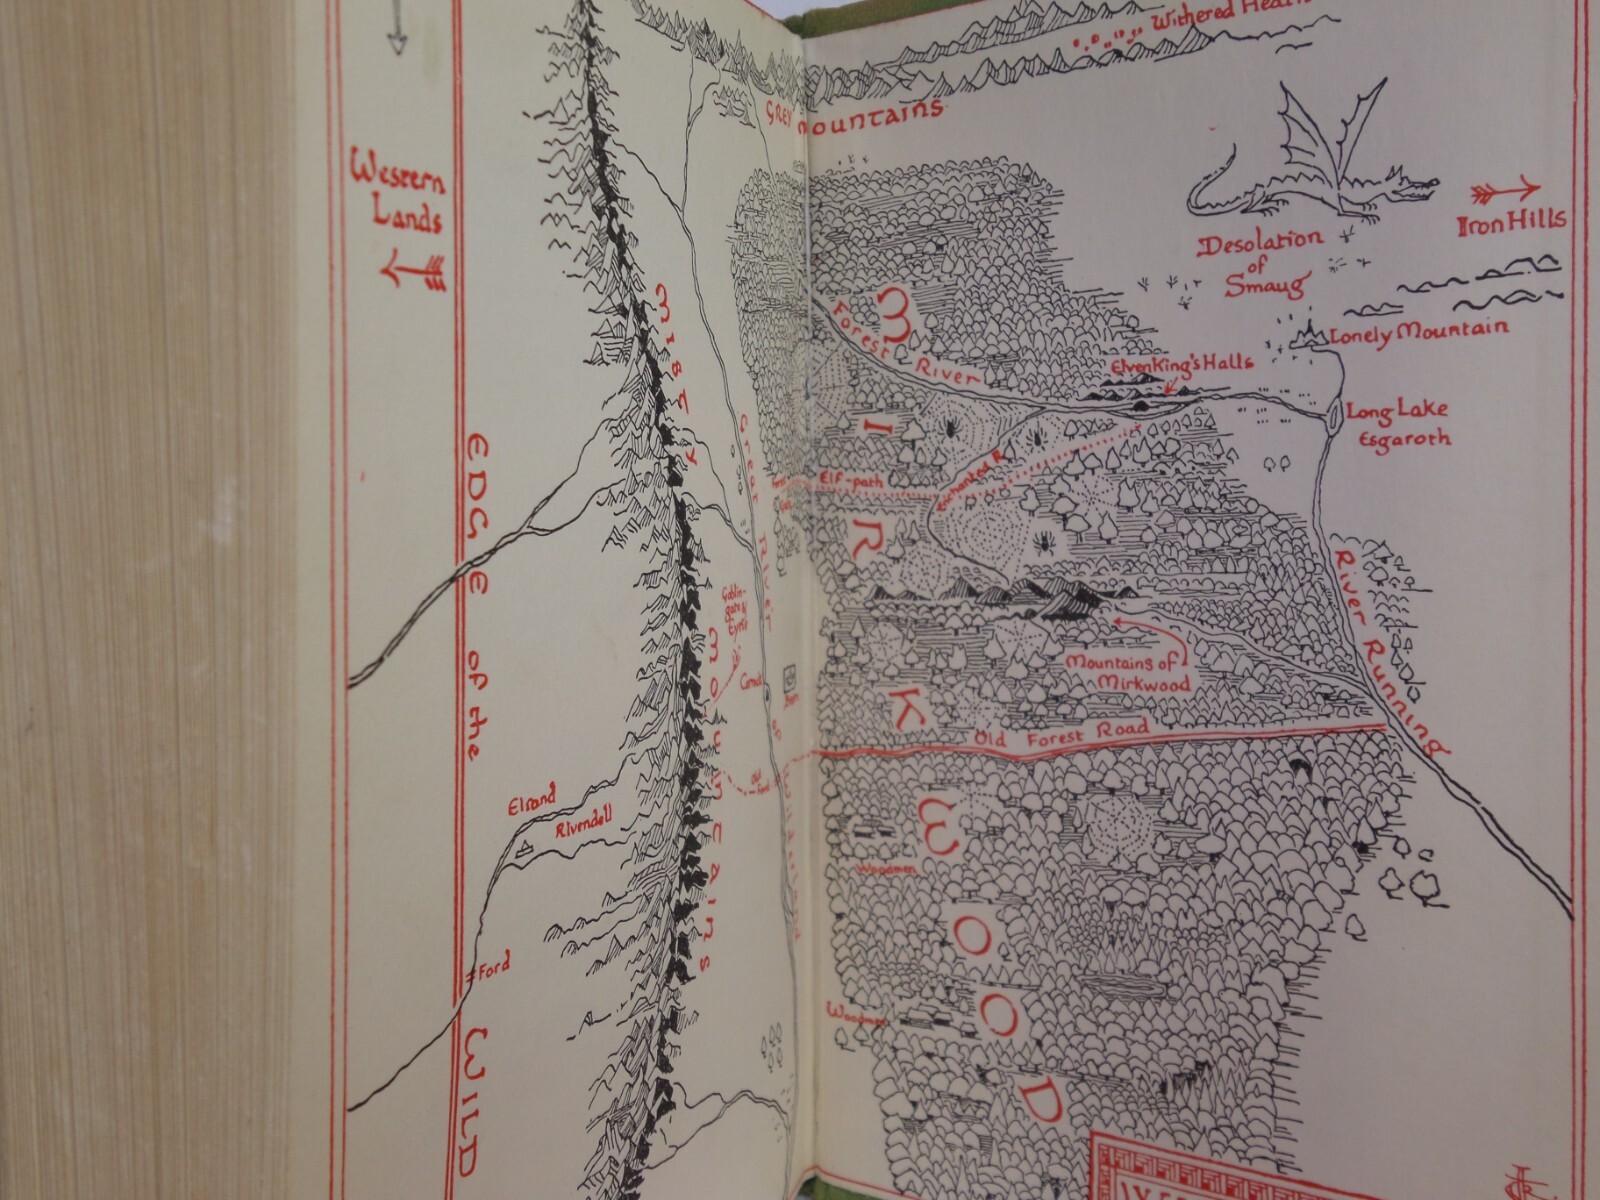 Withered Heath
GREY MOUNTAINS
Western
Lands
Iron Hills
Desolation
of
Smaug
Lonely Mountain
MISTY MOUNTAINS
Forest River
ElvenKing's Halls
Long Lake
Esgaroth
Great River of Wilderland
EDGE of the WILD
MIRKWOOD
Elf-path
Enchanted R.
River Running
Goblin-
gate &
Eyrie
Carrock
Mountains of
Mirkwood
Old Forest Road
Old
Ford
Elrond
Rivendell
Woodmen
Ford
Woodmen